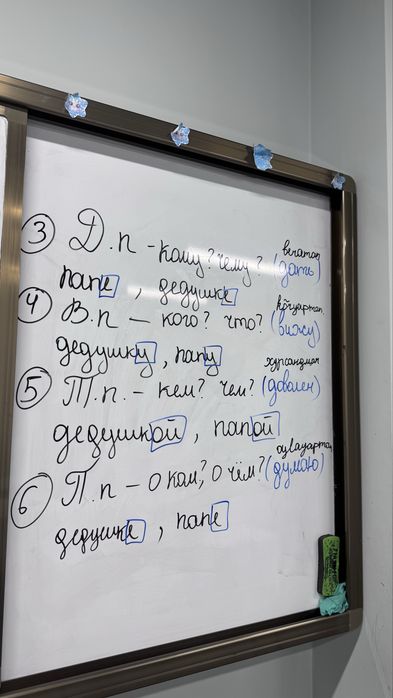 ③ Д.п - кому? чему? (дать)
папе, дедушке
④ В.п — кого? что? (вижу)
дедушку, папу
⑤ Т.п. - кем? чем? (доволен)
дедушкой, папой
⑥ П.п — о ком? о чём? (думаю)
дедушке, папе